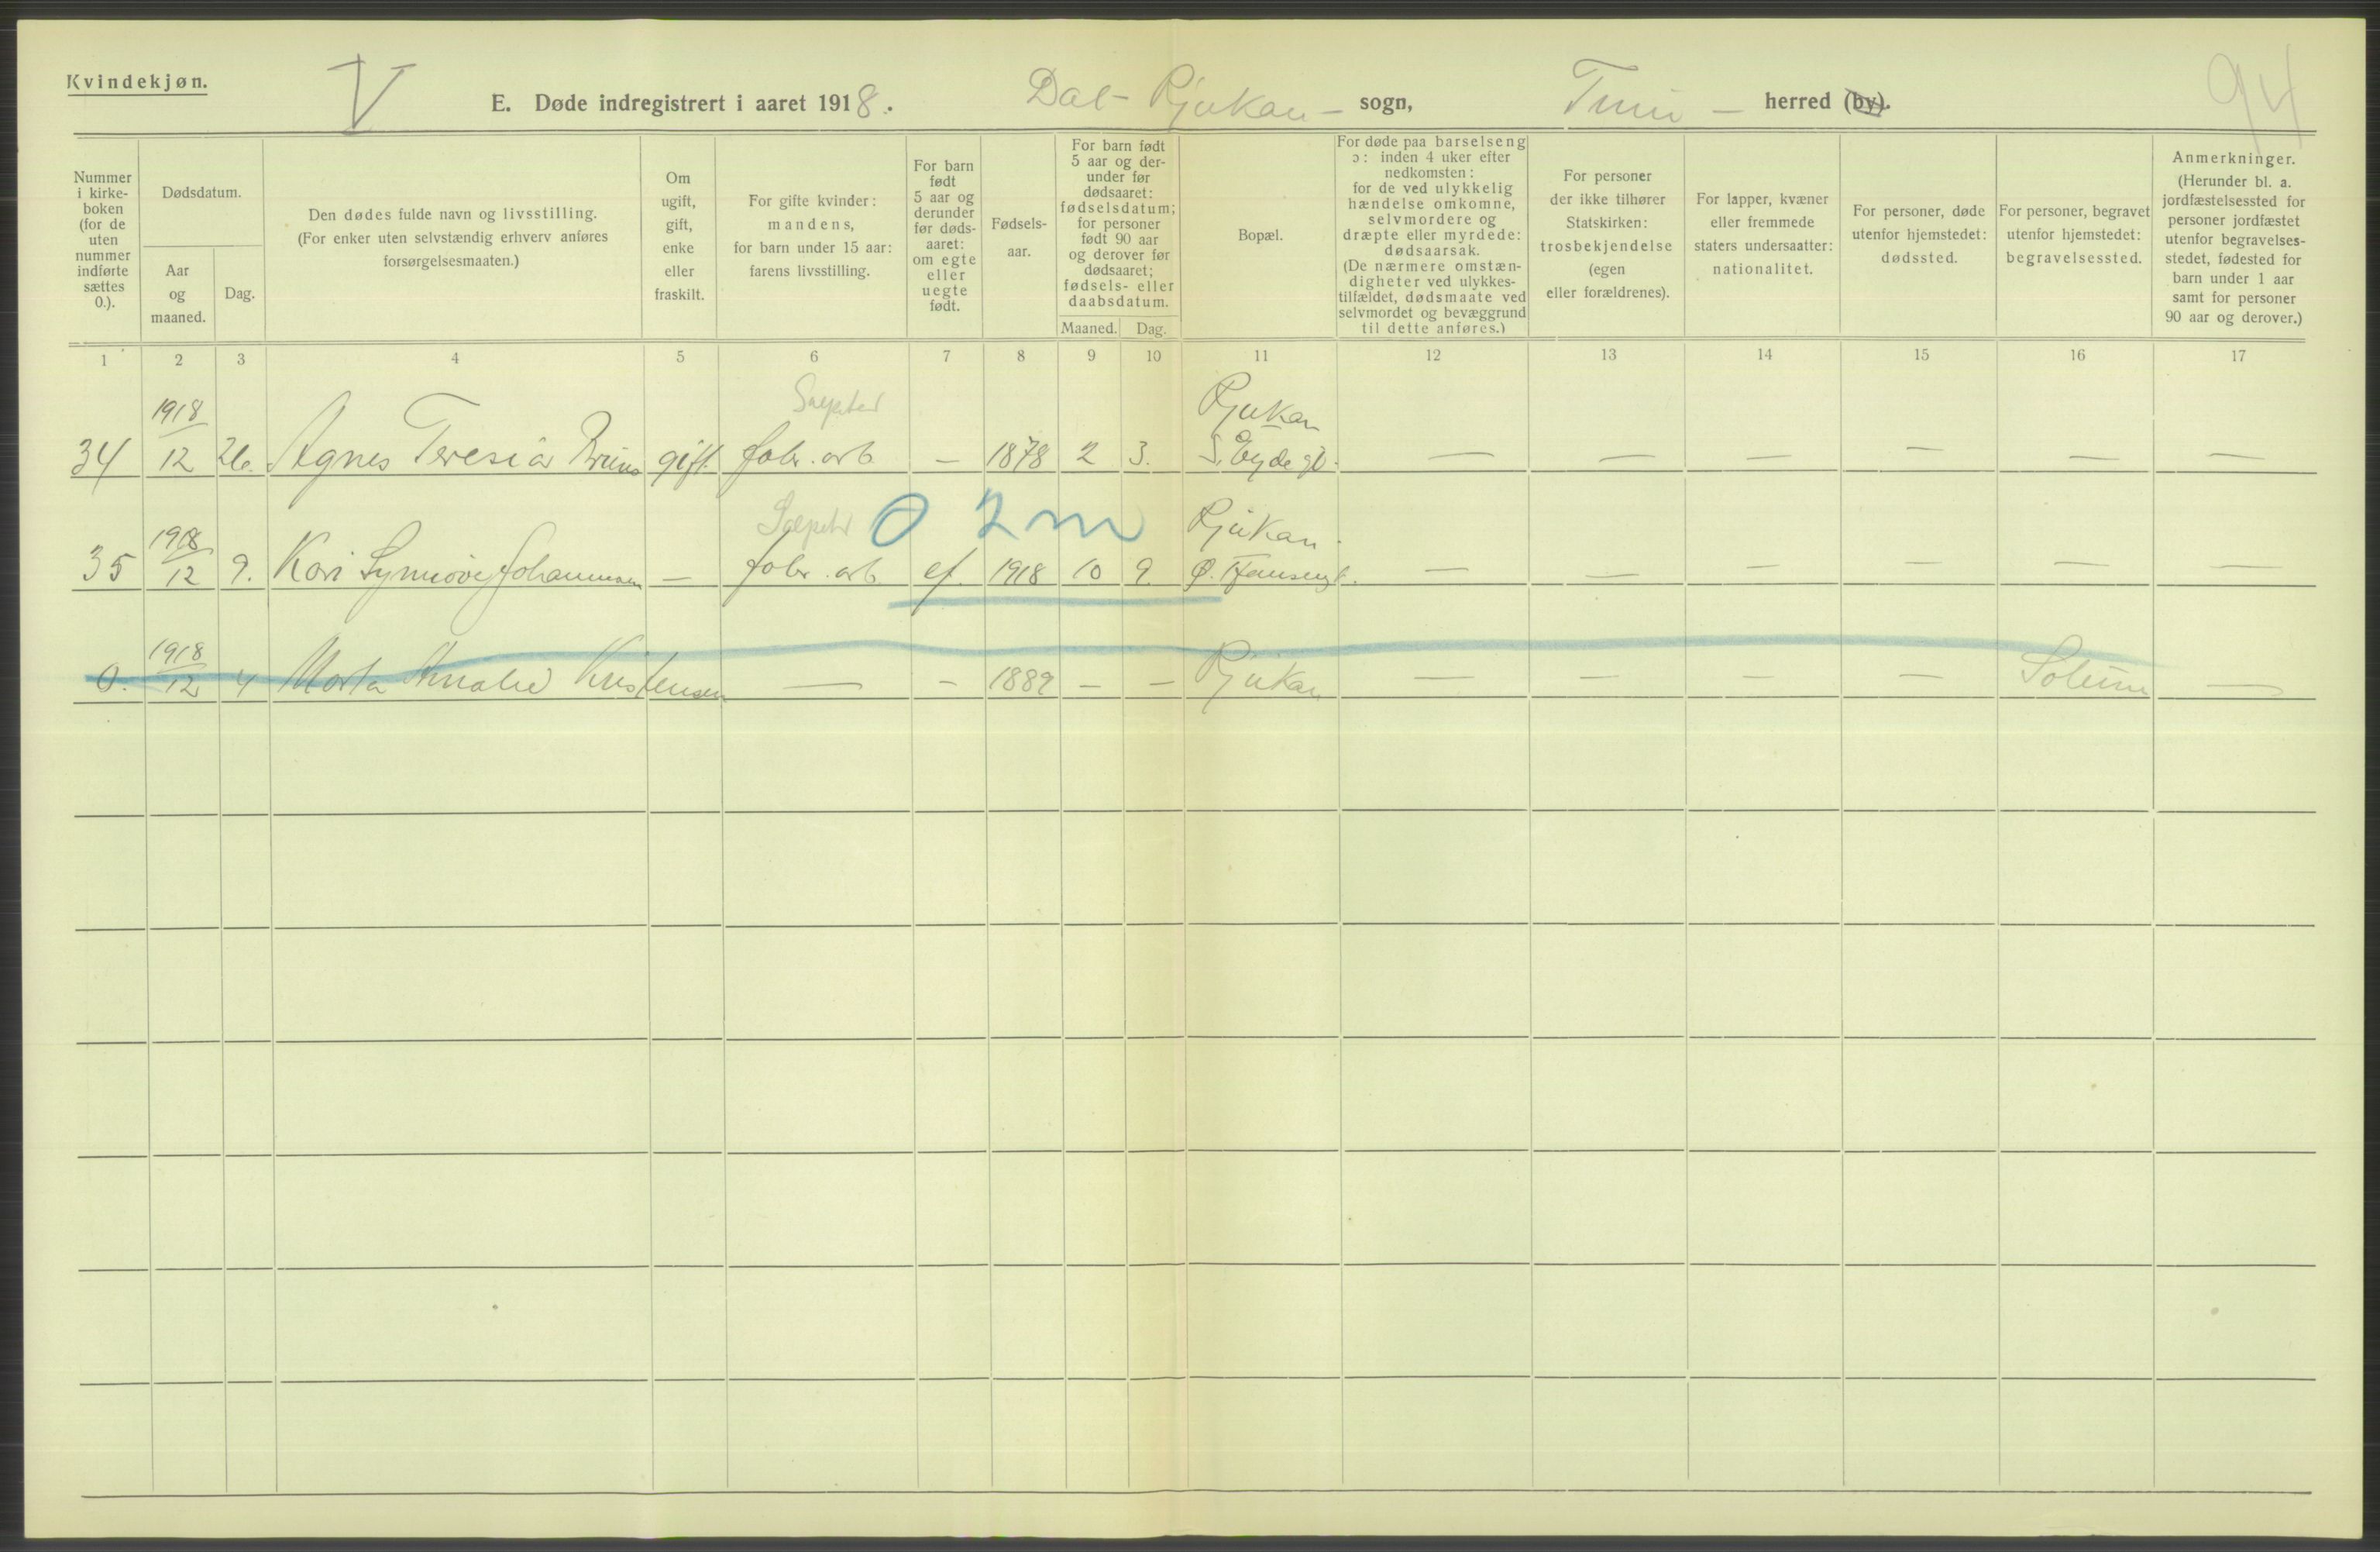 Kvindekjøn.
V
E. Døde indregistrert i aaret 1918. Dal - Rjukan - sogn, Tinn - herred (by).
94
Nummer i kirke-boken (for de uten nummer indførte sættes 0.).
Dødsdatum.
Aar og maaned.
Dag.
Den dødes fulde navn og livsstilling.
(For enker uten selvstændig erhverv anføres forsørgelsesmaaten.)
Om ugift, gift, enke eller fraskilt.
For gifte kvinder: mandens, for barn under 15 aar: farens livsstilling.
For barn født 5 aar og derunder før døds-aaret: om egte eller uegte født.
Fødsels-aar.
For barn født 5 aar og der-under før dødsaaret: fødselsdatum; for personer født 90 aar og derover før dødsaaret; fødsels- eller daabsdatum.
Maaned. Dag.
Bopæl.
For døde paa barselseng ɔ: inden 4 uker efter nedkomsten: for de ved ulykkelig hændelse omkomne, selvmordere og dræpte eller myrdede: dødsaarsak.
(De nærmere omstæn-digheter ved ulykkes-tilfældet, dødsmaate ved selvmordet og bevæggrund til dette anføres.)
For personer der ikke tilhører Statskirken: trosbekjendelse (egen eller forældrenes).
For lapper, kvæner eller fremmede staters undersaatter: nationalitet.
For personer, døde utenfor hjemstedet: dødssted.
For personer, begravet utenfor hjemstedet: begravelsessted.
Anmerkninger.
(Herunder bl. a. jordfæstelsessted for personer jordfæstet utenfor begravelses-stedet, fødested for barn under 1 aar samt for personer 90 aar og derover.)
1 2 3 4 5 6 7 8 9 10 11 12 13 14 15 16 17
1918 Salpeter Rjukan
34 12 26. Agnes Teresia Bruno gift. fabr. arb. - 1878 2 3. S. Eydegt. - - - - - -
1918 Salpeter 0 2 m Rjukan
35 12 9. Kari Synnøve Johannesen - fabr. arb. ef. 1918 10 9 Ø. Hansengt. - - - - - -
1918
0. 12 4 Marta Amalie Kristensen - - 1889 - - Rjukan - - - - Solum -